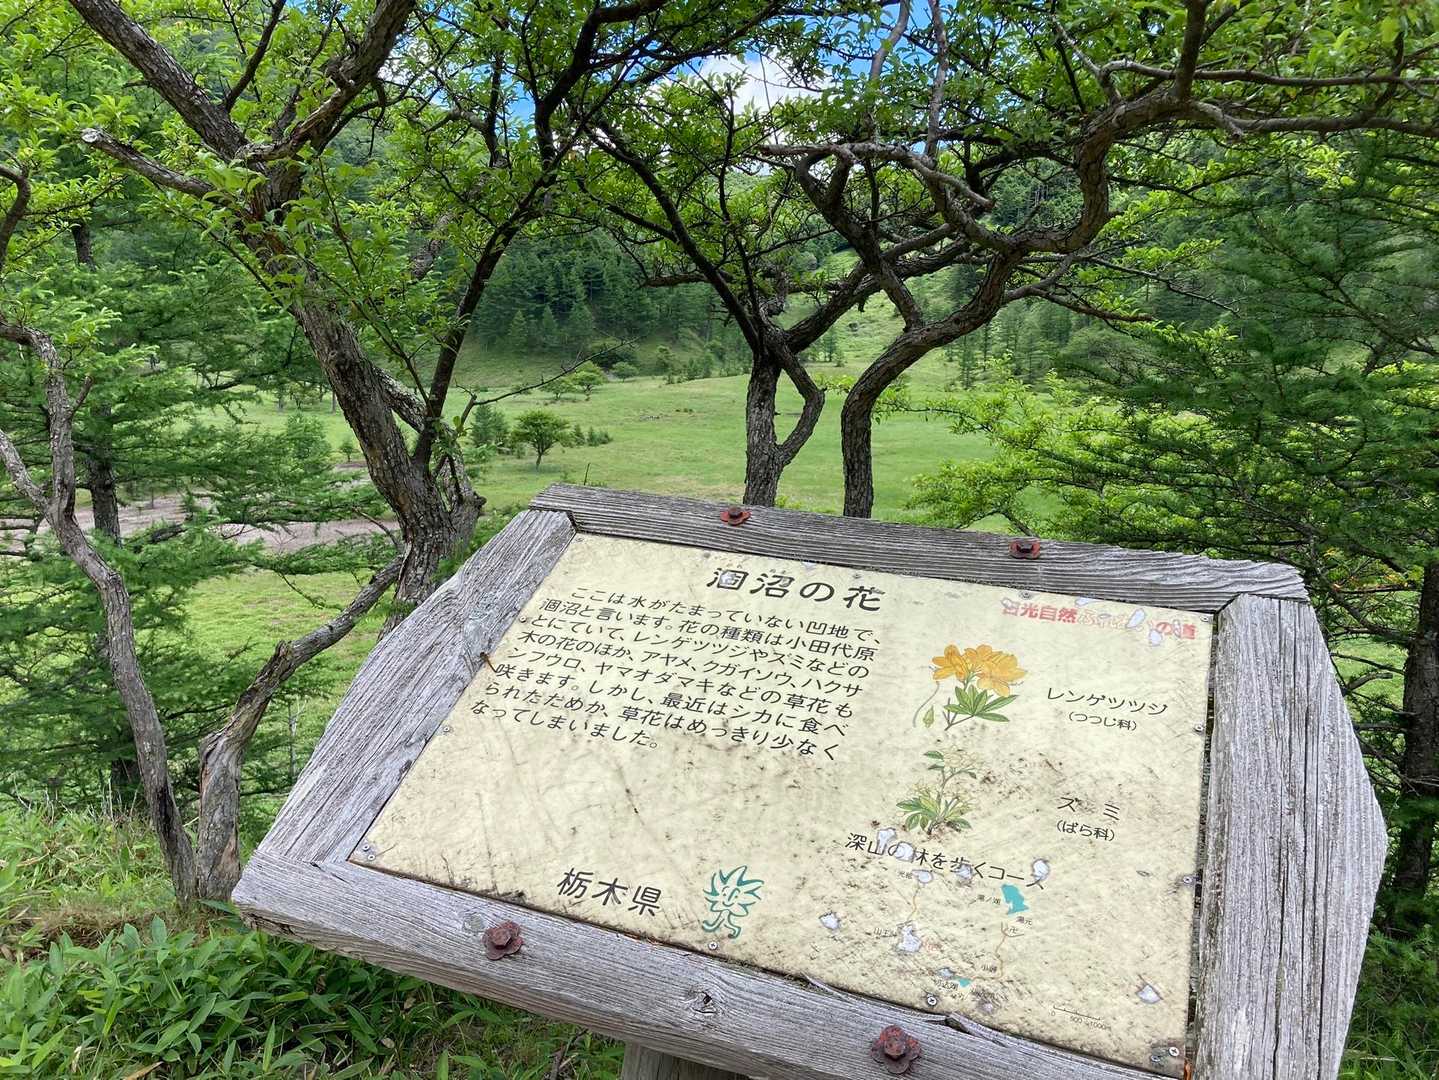 涸沼の花
ここは水がたまっていない凹地で、
涸沼と言います。花の種類は小田代原
とにていて、レンゲツツジやズミなどの
木の花のほか、アヤメ、クガイソウ、ハクサ
ンフウロ、ヤマオダマキなどの草花も
咲きます。しかし、最近はシカに食べ
られただめか、草花はめっきり少なく
なってしまいました。
栃木県
日光自然ふれあいの道
レンゲツツジ
(つつじ科)
ズミ
(ばら科)
深山の林を歩くコース
湯ノ湖
湯元
0 500 1000m